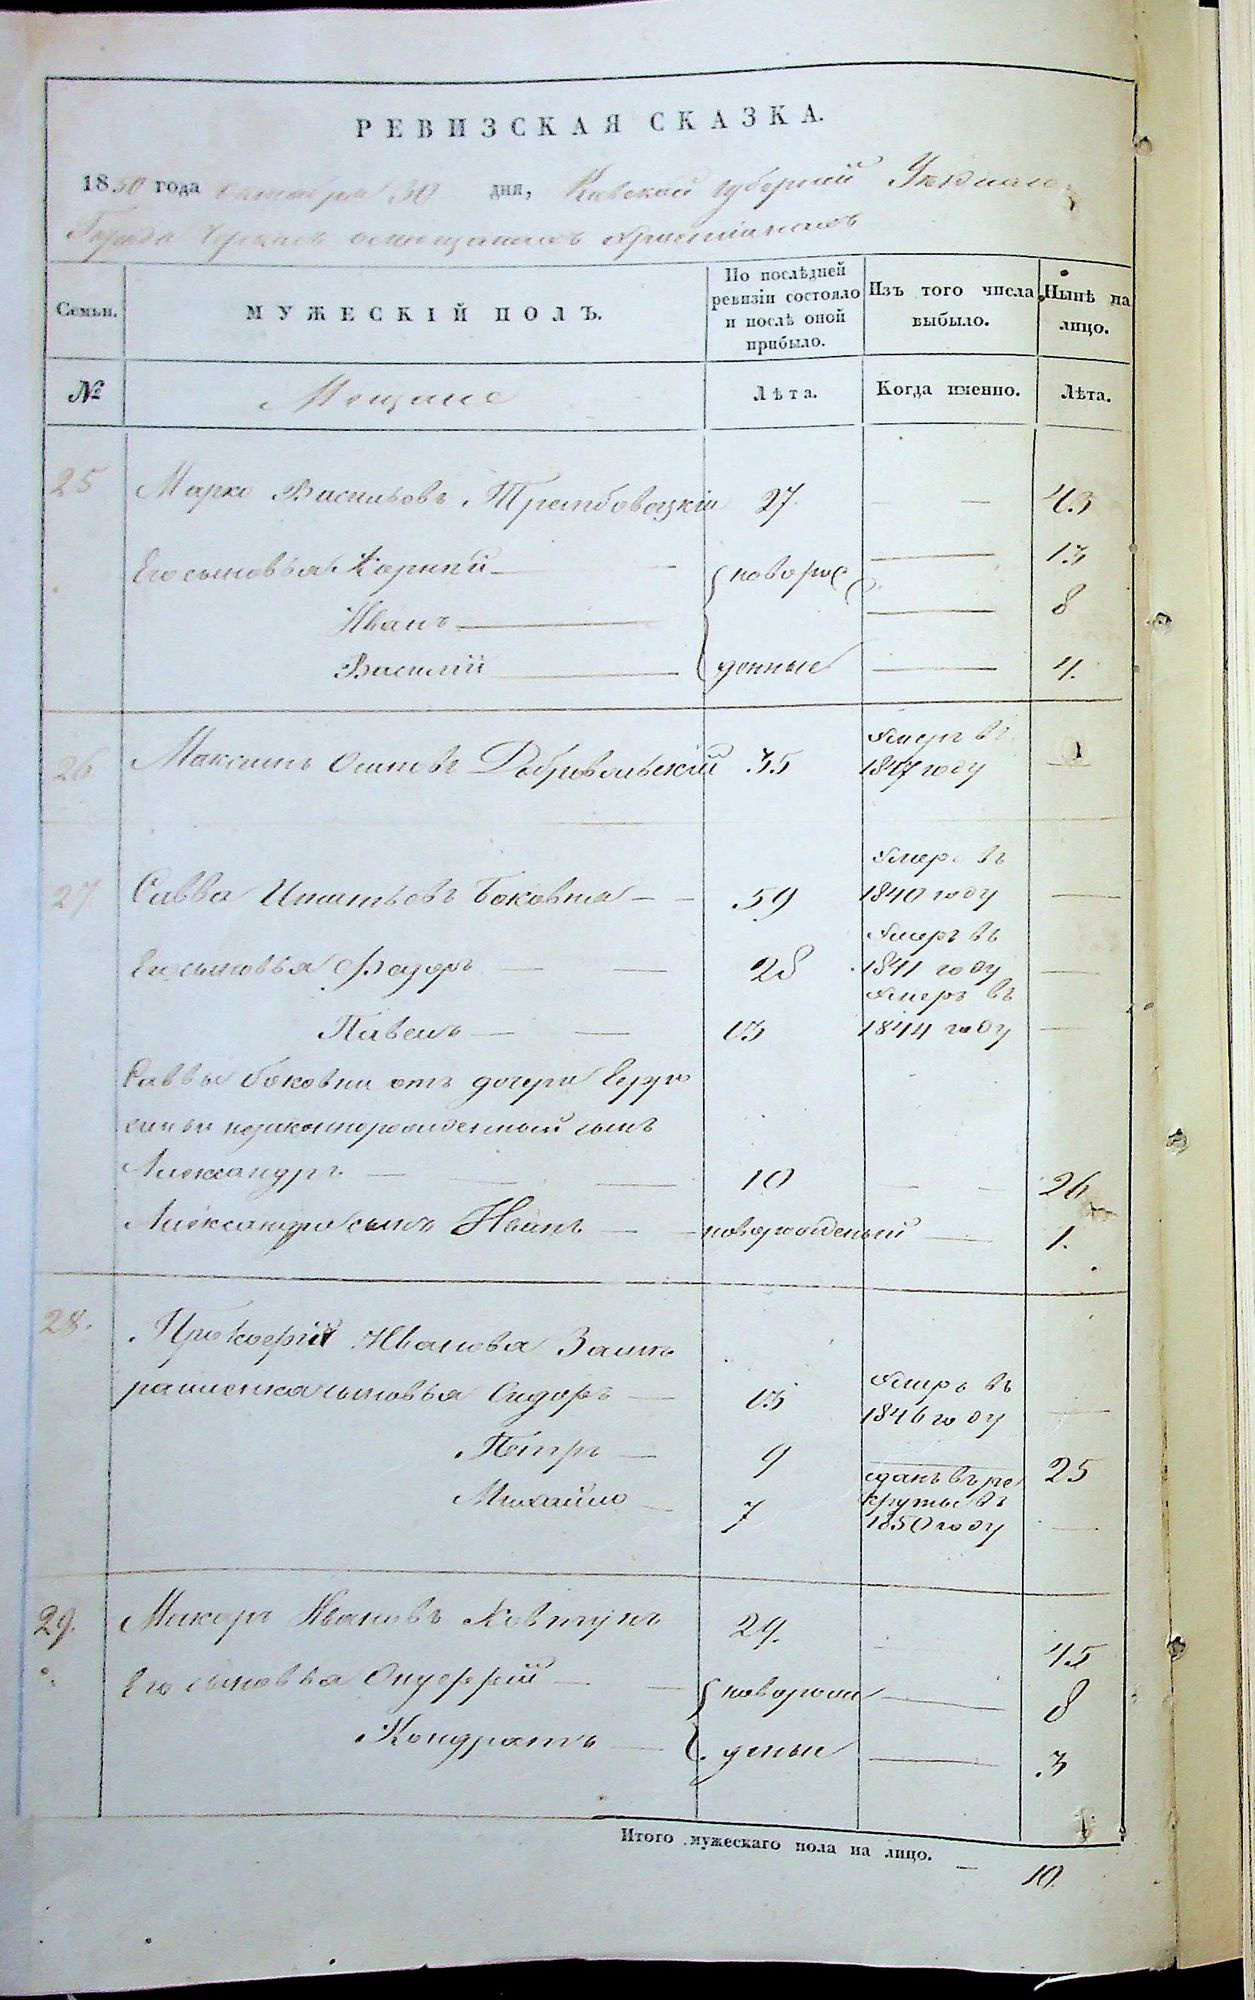 РЕВИЗСКАЯ СКАЗКА.
1850 года октября 30 дня, Кіевской губерніи Уѣзднаго
Города Черкасъ о мещанахъ христіянахъ
Семьи.
МУЖЕСКІЙ ПОЛЪ.
По послѣдней ревизіи состояло и послѣ оной прибыло.
Изъ того числа выбыло.
Нынѣ на лицо.
№ Мещане Лѣта. Когда именно. Лѣта.
25 Марко Васильевъ Трембовецкій 27 — 43
Его сыновья Карпий — новорож — 13
Иванъ — — 8
Василій — денные — 4.
26 Максимъ Осиповъ Добровольскій 35 умеръ въ 1847 году —
27 Савва Игнатьевъ Боковня — — 59 умеръ въ 1840 году —
Его сыновья Федоръ — — 28 умеръ въ 1841 году —
Павелъ — — 13 умеръ въ 1844 году —
Саввы боковни отъ дочери
незаконнорожденный сынъ
Александръ — — — 10 — — 26
Александра сынъ Иванъ — — новорожденый — 1.
28. Прокофія Иванова
сыновья Сидоръ — 13 умеръ въ 1846 году —
Петръ — 9 — 25
Михайло — 7 сданъ въ рекруты въ 1850 году —
29. Макаръ Ивановъ Ковтунъ 29. — 45
Его сыновья Онуфрій — — новорож — 8
Кондратъ — деные — 3
Итого мужескаго пола на лицо. — 10.